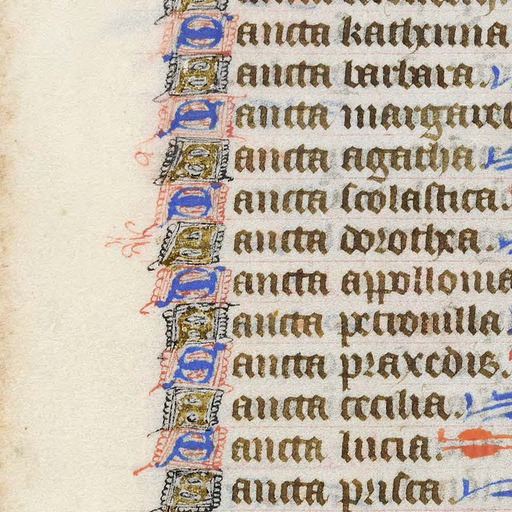 Sancta katherina
Sancta barbara.
Sancta margaret
Sancta agatha
Sancta scolastica.
Sancta dorothea.
Sancta appollonia
Sancta petronilla
Sancta praxedis.
Sancta cecilia.
Sancta lucia.
Sancta prisca.